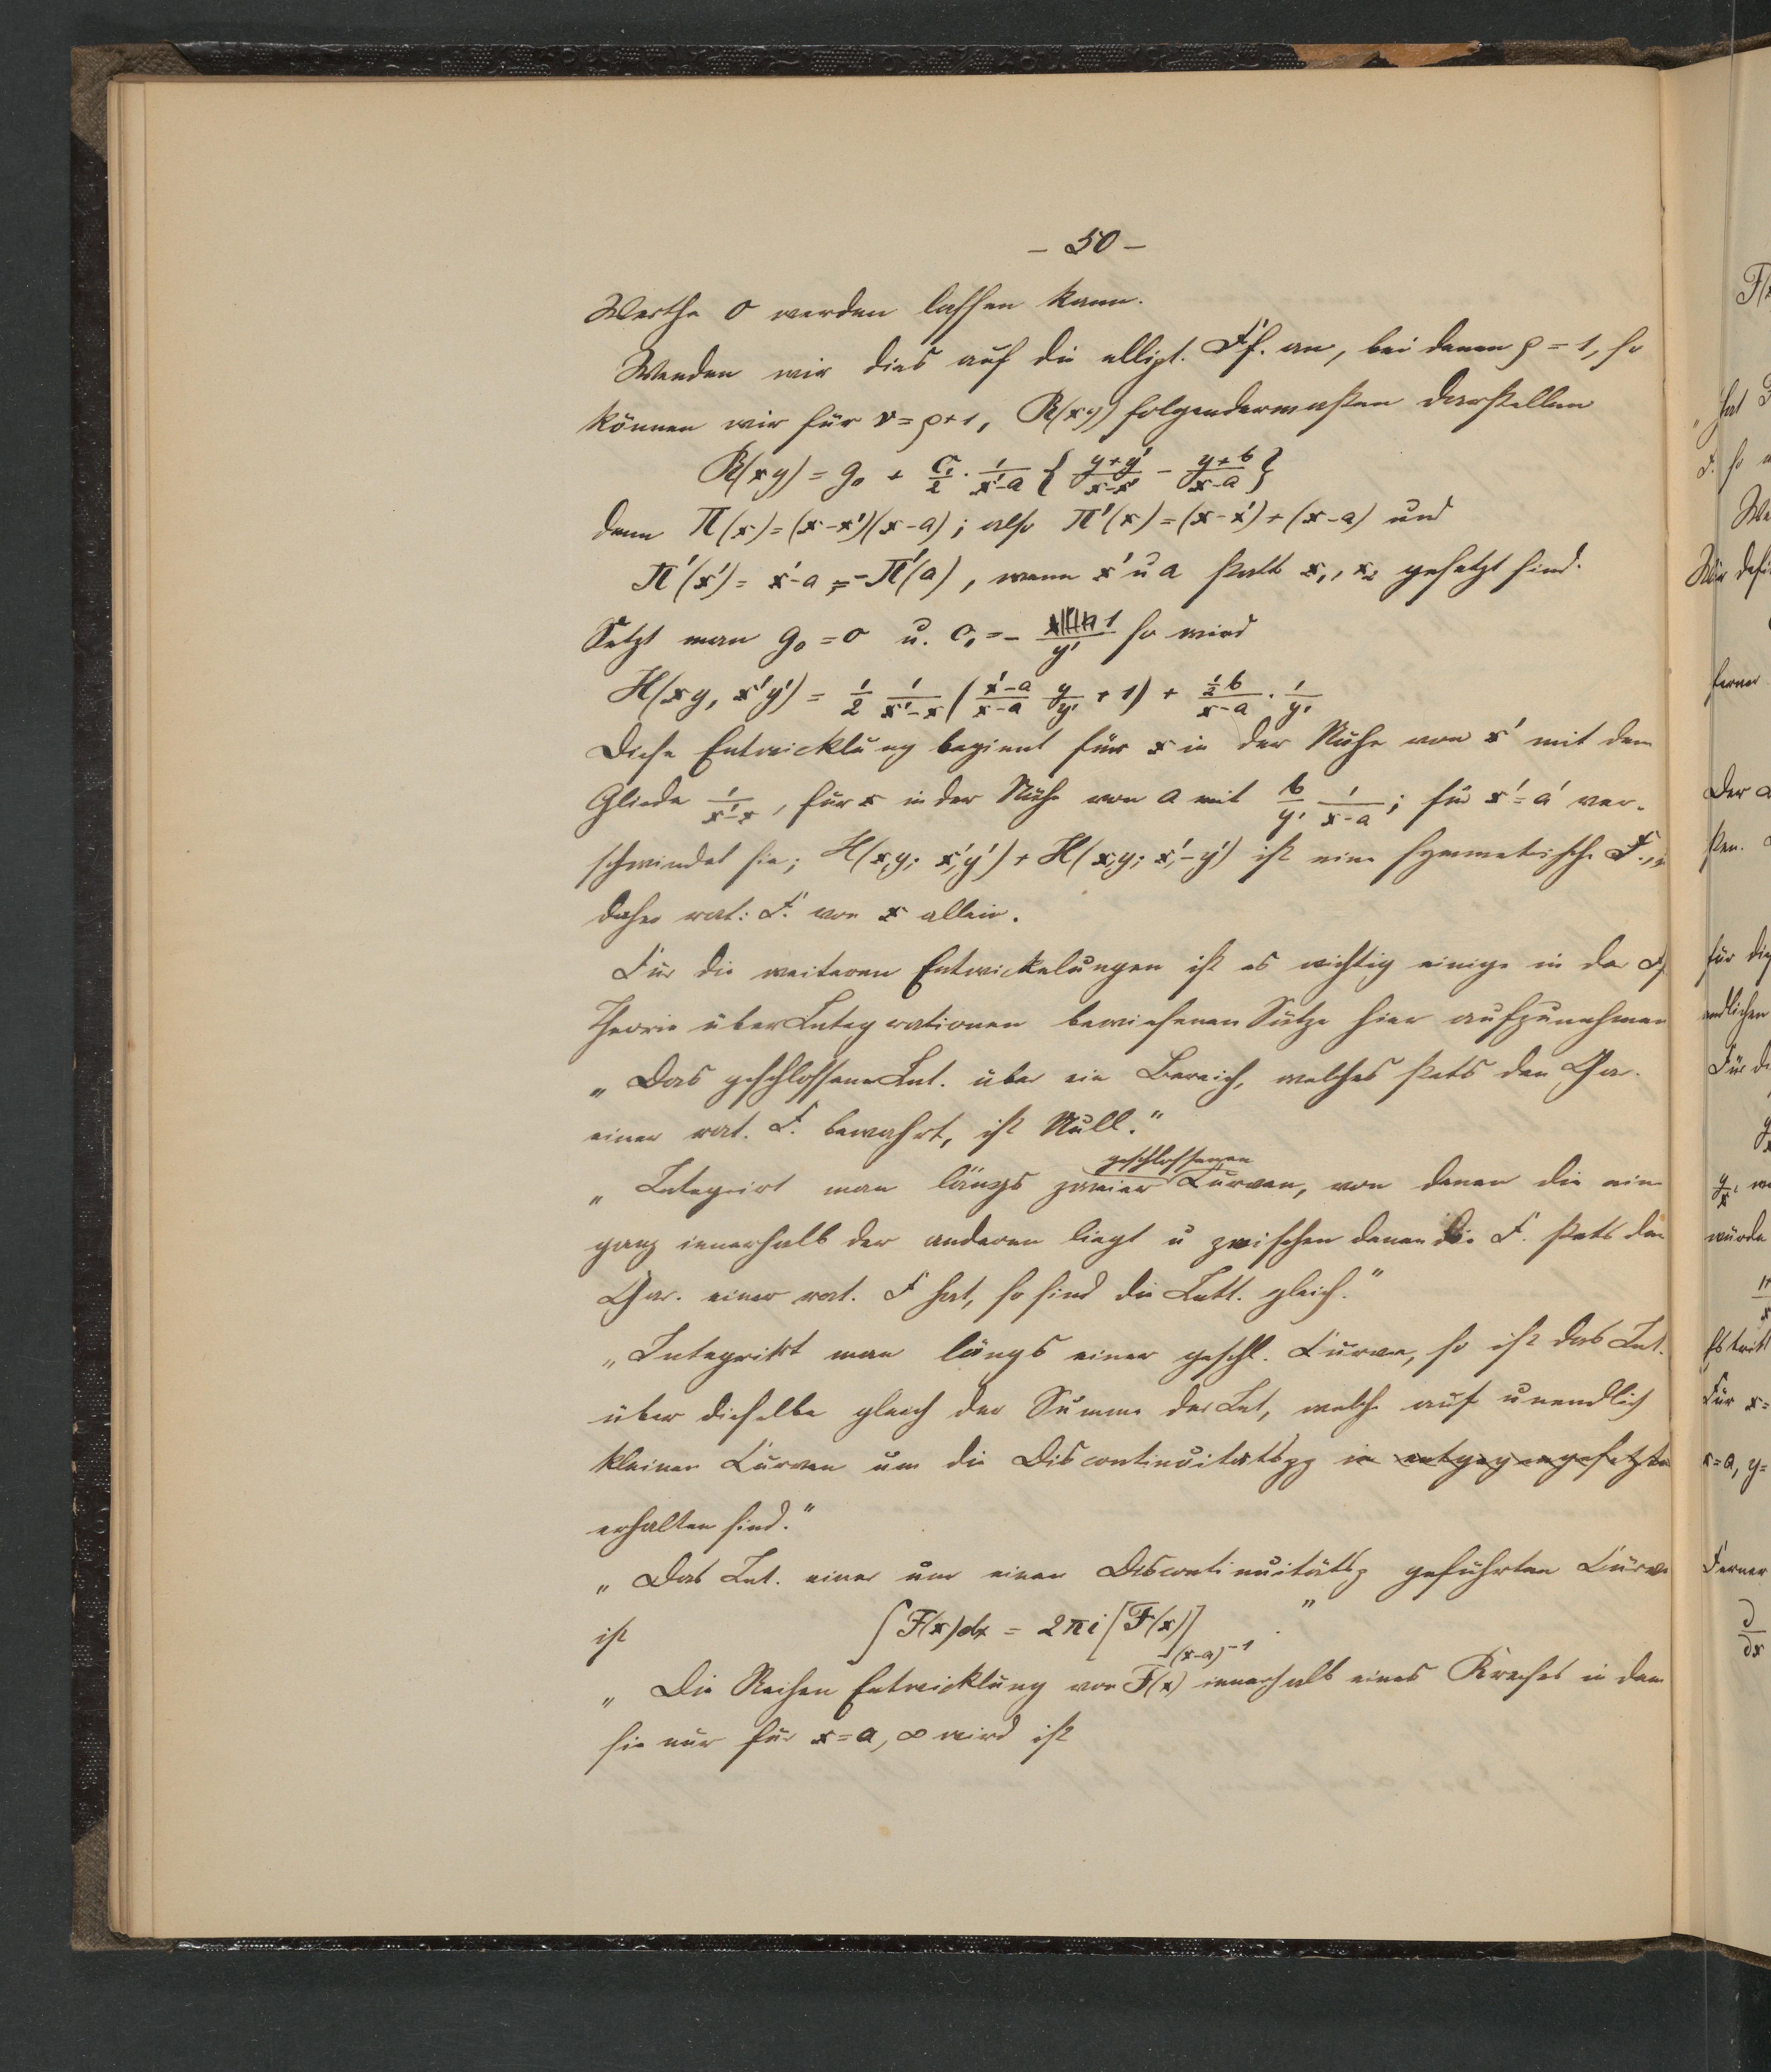 – 50 –
Werthe 0 werden lassen kann.
Wenden wir dies auf die ellipt. Ff. an, bei denen p = 1, so
können wir für ν = p+1, R(xy) folgendermaßen darstellen
R(xy) = g₀ + C₁/2 · 1/(x'-a) { (y+y')/(x-x') - (y+b)/(x-a) }
denn Π(x) = (x-x')(x-a); also Π'(x) = (x-x') + (x-a) und
Π'(x') = x'-a = -Π'(a), wenn x' u a statt x₁, x₂ gesetzt sind.
Setzt man g₀ = 0 u. C₁ = - 1/y' so wird
H(xy, x'y') = 1/2 1/(x'-x) ( (x'-a)/(x-a) y/y' + 1) + ½b/(x-a) · 1/y'
Diese Entwicklung beginnt für x in der Nähe von x' mit dem
Gliede 1/(x'-x), für x in der Nähe von a mit b/y' 1/(x-a); für x' = a' ver-
schwindet sie; H(x,y; x',y') + H(x,y; x',-y') ist eine symmetrische F.,
daher rat: F. von x allein.
Für die weiteren Entwickelungen ist es wichtig einige in der Ff
Theorie über Integrationen bewiesenen Sätze hier aufzunehmen
„Das geschlossene Int. über ein Bereich, welches stets den Char.
einer rat. F. bewahrt, ist Null."
„Integrirt man längs zweier geschlossenen Curven, von denen die eine
ganz innerhalb der anderen liegt u zwischen denen die F. stets den
Char. einer rat. F hat, so sind die Intt. gleich."
„Integrirt man längs einer geschl. Curve, so ist das Int.
über dieselbe gleich der Summe der Int, welche auf unendlich
kleinen Curven um die Discontinuitätspp in entgegengesetzten
erhalten sind."
„Das Int. einer um einen Discontinuitätsp geführten Curve
ist ∫F(x)dx = 2πi[F(x)]₍ₓ₋ₐ₎⁻¹ ."
„Die Reihen Entwicklung von F(x) innerhalb eines Kreises in dem
sie nur für x = a, ∞ wird ist